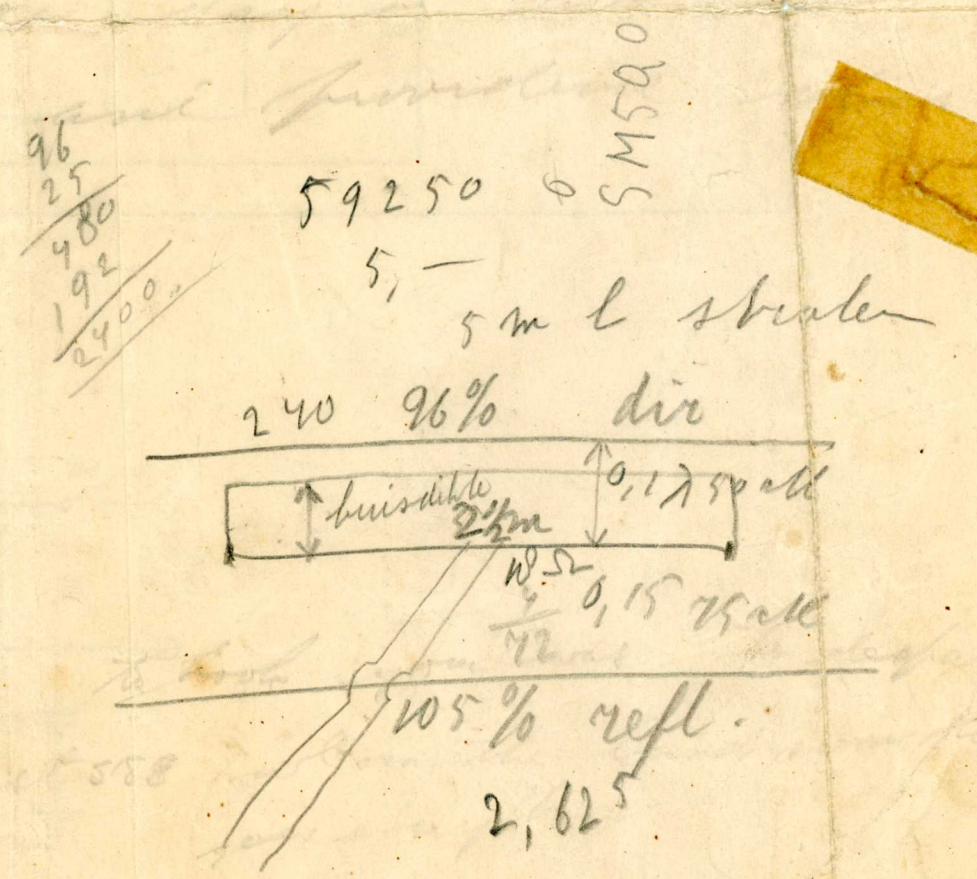 96
25
480
192
2400
59250
SM5QO
5,—
5 m l stralen
240 96% dir
buisdikte
2½m
0,1 λ 50 cM
18 Ω
4
72
0,15 75 cM
105% refl.
2,62⁵
558